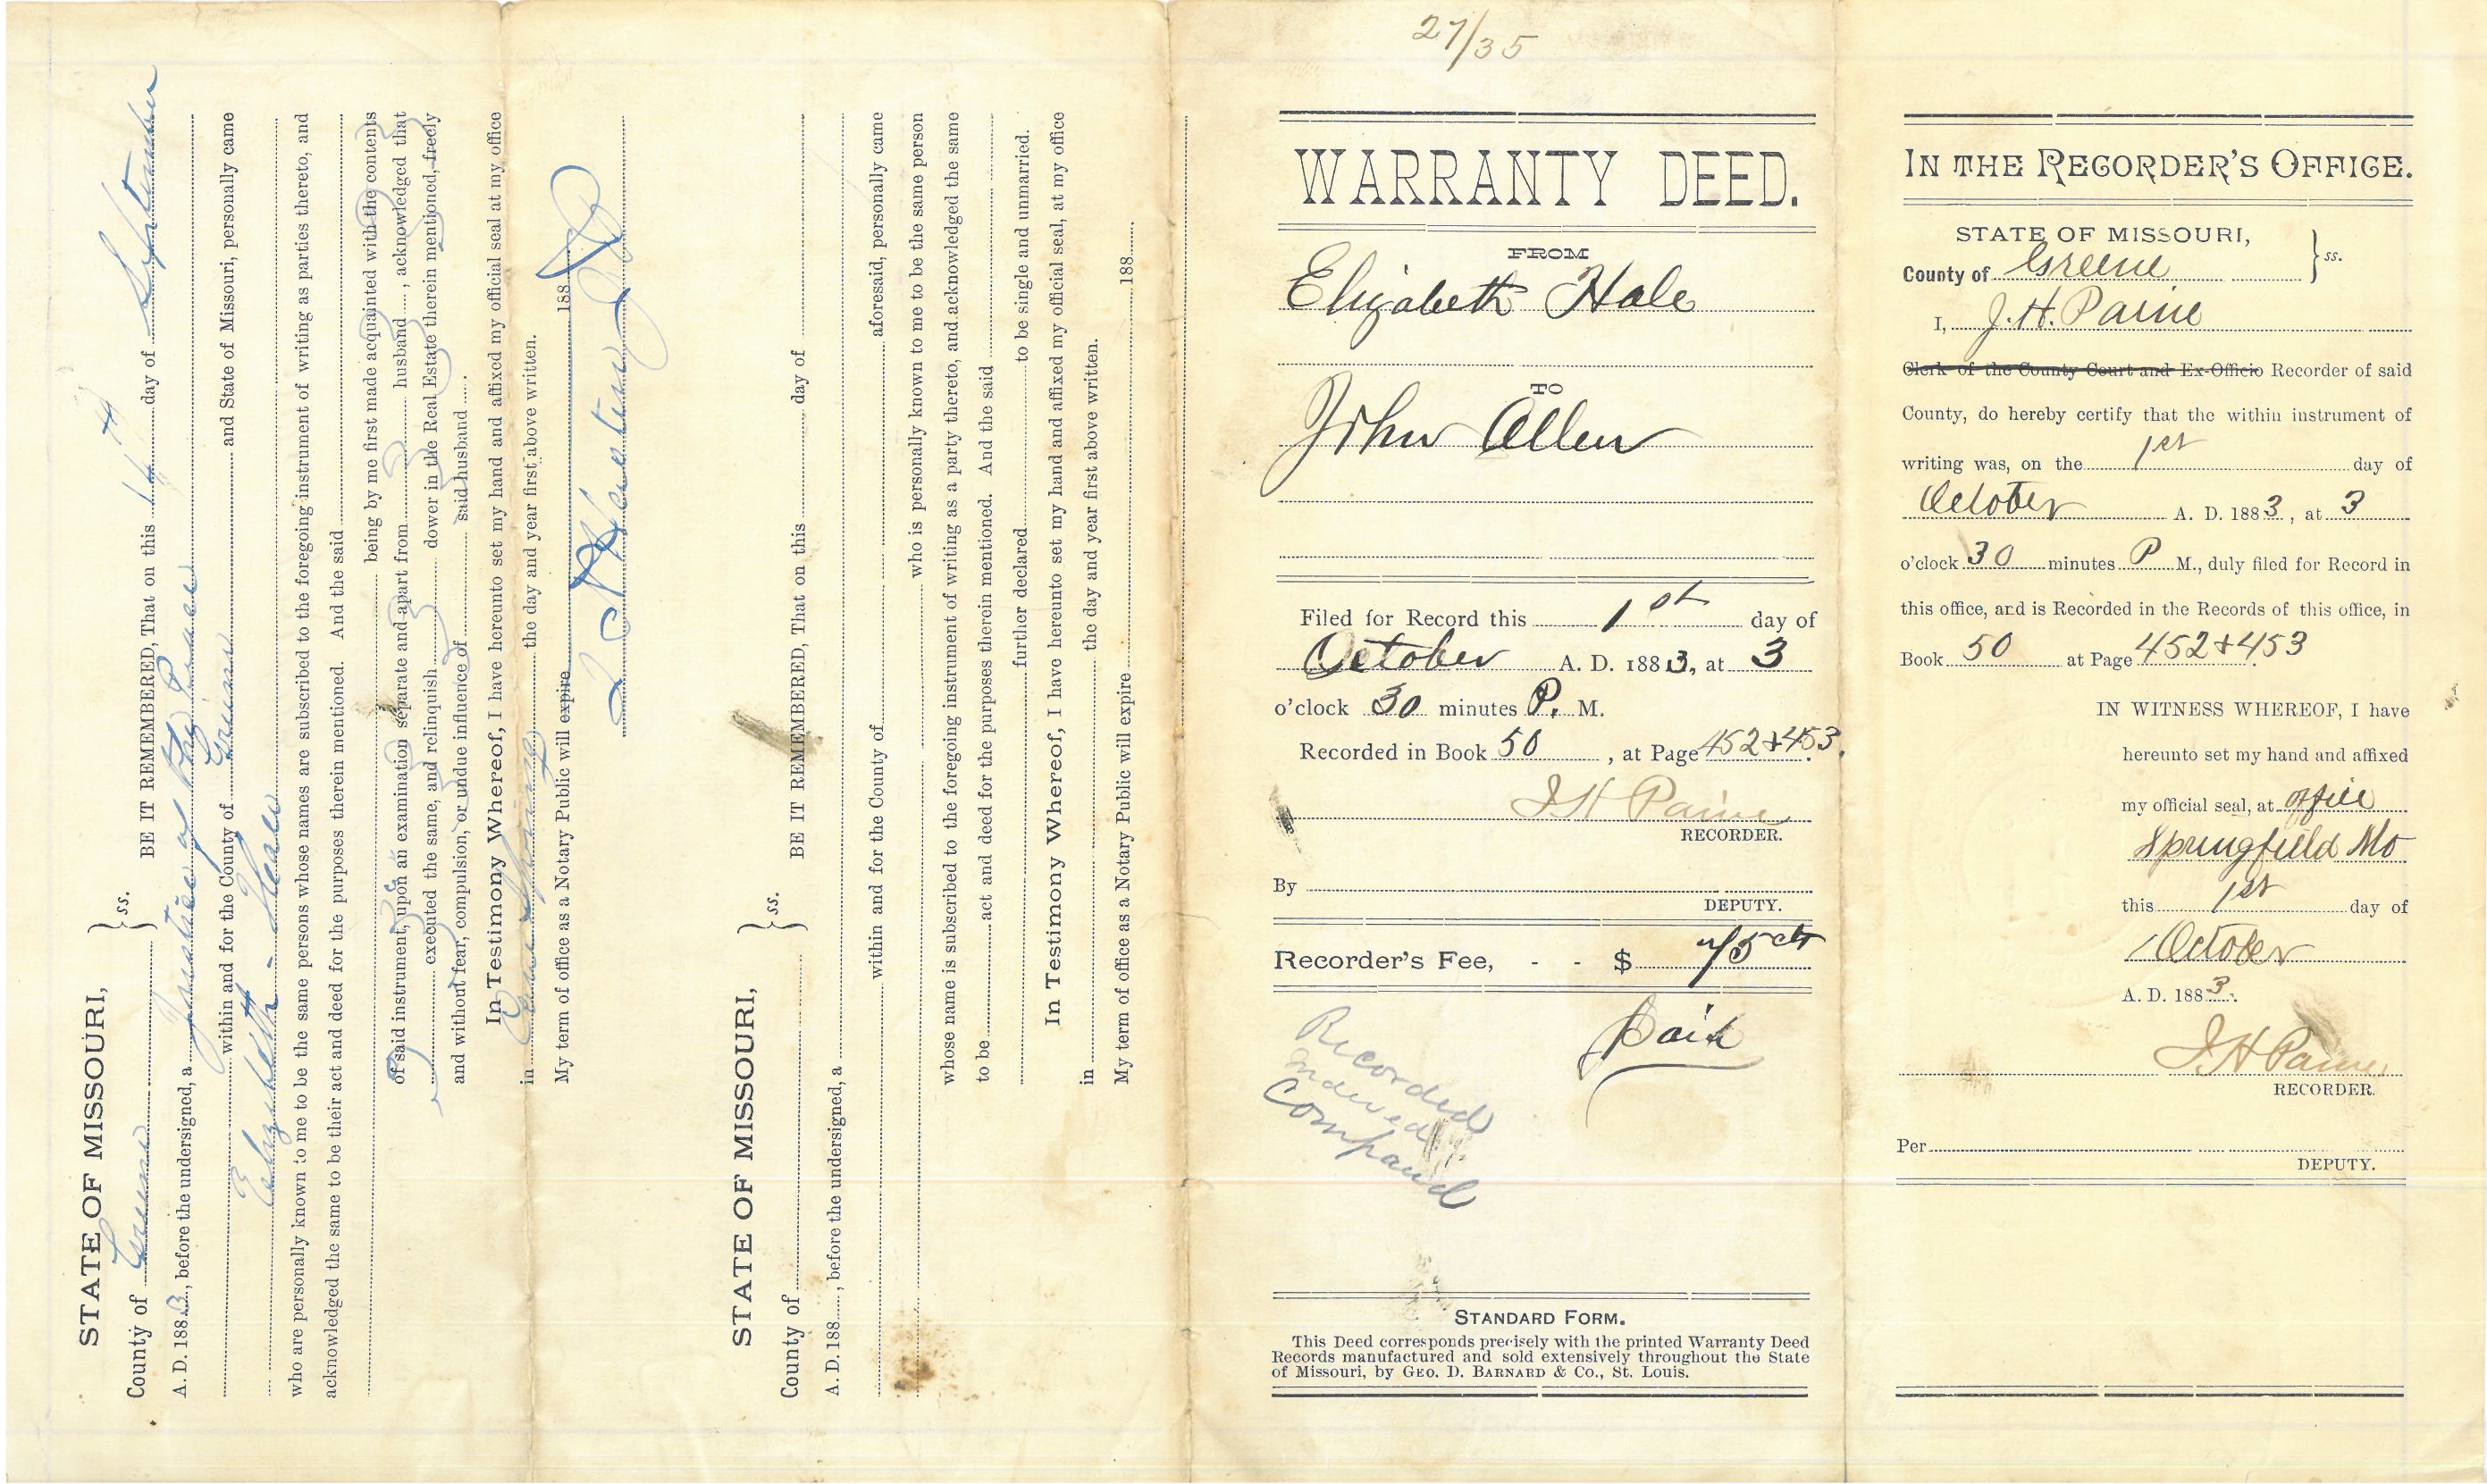 STATE OF MISSOURI,
County of Greene } ss. BE IT REMEMBERED, That on this 14 day of September
A. D. 1883, before the undersigned, a Justice of the Peace
within and for the County of Greene and State of Missouri, personally came
Elizabeth Heale
who are personally known to me to be the same persons whose names are subscribed to the foregoing instrument of writing as parties thereto, and
acknowledged the same to be their act and deed for the purposes therein mentioned. And the said
being by me first made acquainted with the contents
of said instrument, upon an examination separate and apart from husband, acknowledged that
executed the same, and relinquish dower in the Real Estate therein mentioned, freely
and without fear, compulsion, or undue influence of said husband
In Testimony Whereof, I have hereunto set my hand and affixed my official seal at my office
in Cane Spring the day and year first above written.
My term of office as a Notary Public will expire 188
STATE OF MISSOURI,
County of } ss. BE IT REMEMBERED, That on this day of
A. D. 188 , before the undersigned, a
within and for the County of aforesaid, personally came
who is personally known to me to be the same person
whose name is subscribed to the foregoing instrument of writing as a party thereto, and acknowledged the same
to be act and deed for the purposes therein mentioned. And the said
further declared to be single and unmarried.
In Testimony Whereof, I have hereunto set my hand and affixed my official seal, at my office
in the day and year first above written.
My term of office as a Notary Public will expire 188
27/35
WARRANTY DEED.
FROM
Elizabeth Hale
TO
John Allen
Filed for Record this 1st day of
October A. D. 1883, at 3
o'clock 30 minutes P. M.
Recorded in Book 50, at Page 452+453.
J H Paine
RECORDER.
By
DEPUTY.
Recorder's Fee, - - $ 75 cts
Paid
Recorded
Indexed
Compared
STANDARD FORM.
This Deed corresponds precisely with the printed Warranty Deed
Records manufactured and sold extensively throughout the State
of Missouri, by GEO. D. BARNARD & CO., ST. LOUIS.
IN THE RECORDER'S OFFICE.
STATE OF MISSOURI,
County of Greene } ss.
I, J. H. Paine
Clerk of the County Court and Ex-Officio Recorder of said
County, do hereby certify that the within instrument of
writing was, on the 1st day of
October A. D. 1883, at 3
o'clock 30 minutes P M., duly filed for Record in
this office, and is Recorded in the Records of this office, in
Book 50 at Page 452+453
IN WITNESS WHEREOF, I have
hereunto set my hand and affixed
my official seal, at office
Springfield Mo
this 1st day of
October
A. D. 1883.
J H Paine
RECORDER.
Per
DEPUTY.